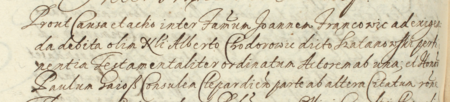 Prout Causa et actio inter Famum Joannem Francowic ad exigen
da debita olim Xbi Alberto Chodorowic dicto Szatanowski perti
nentia Testamentaliter ordinatum Actorem ab una, et Hono
Paulum Gacoß Consulem Clepardien parte ab altera Citatum